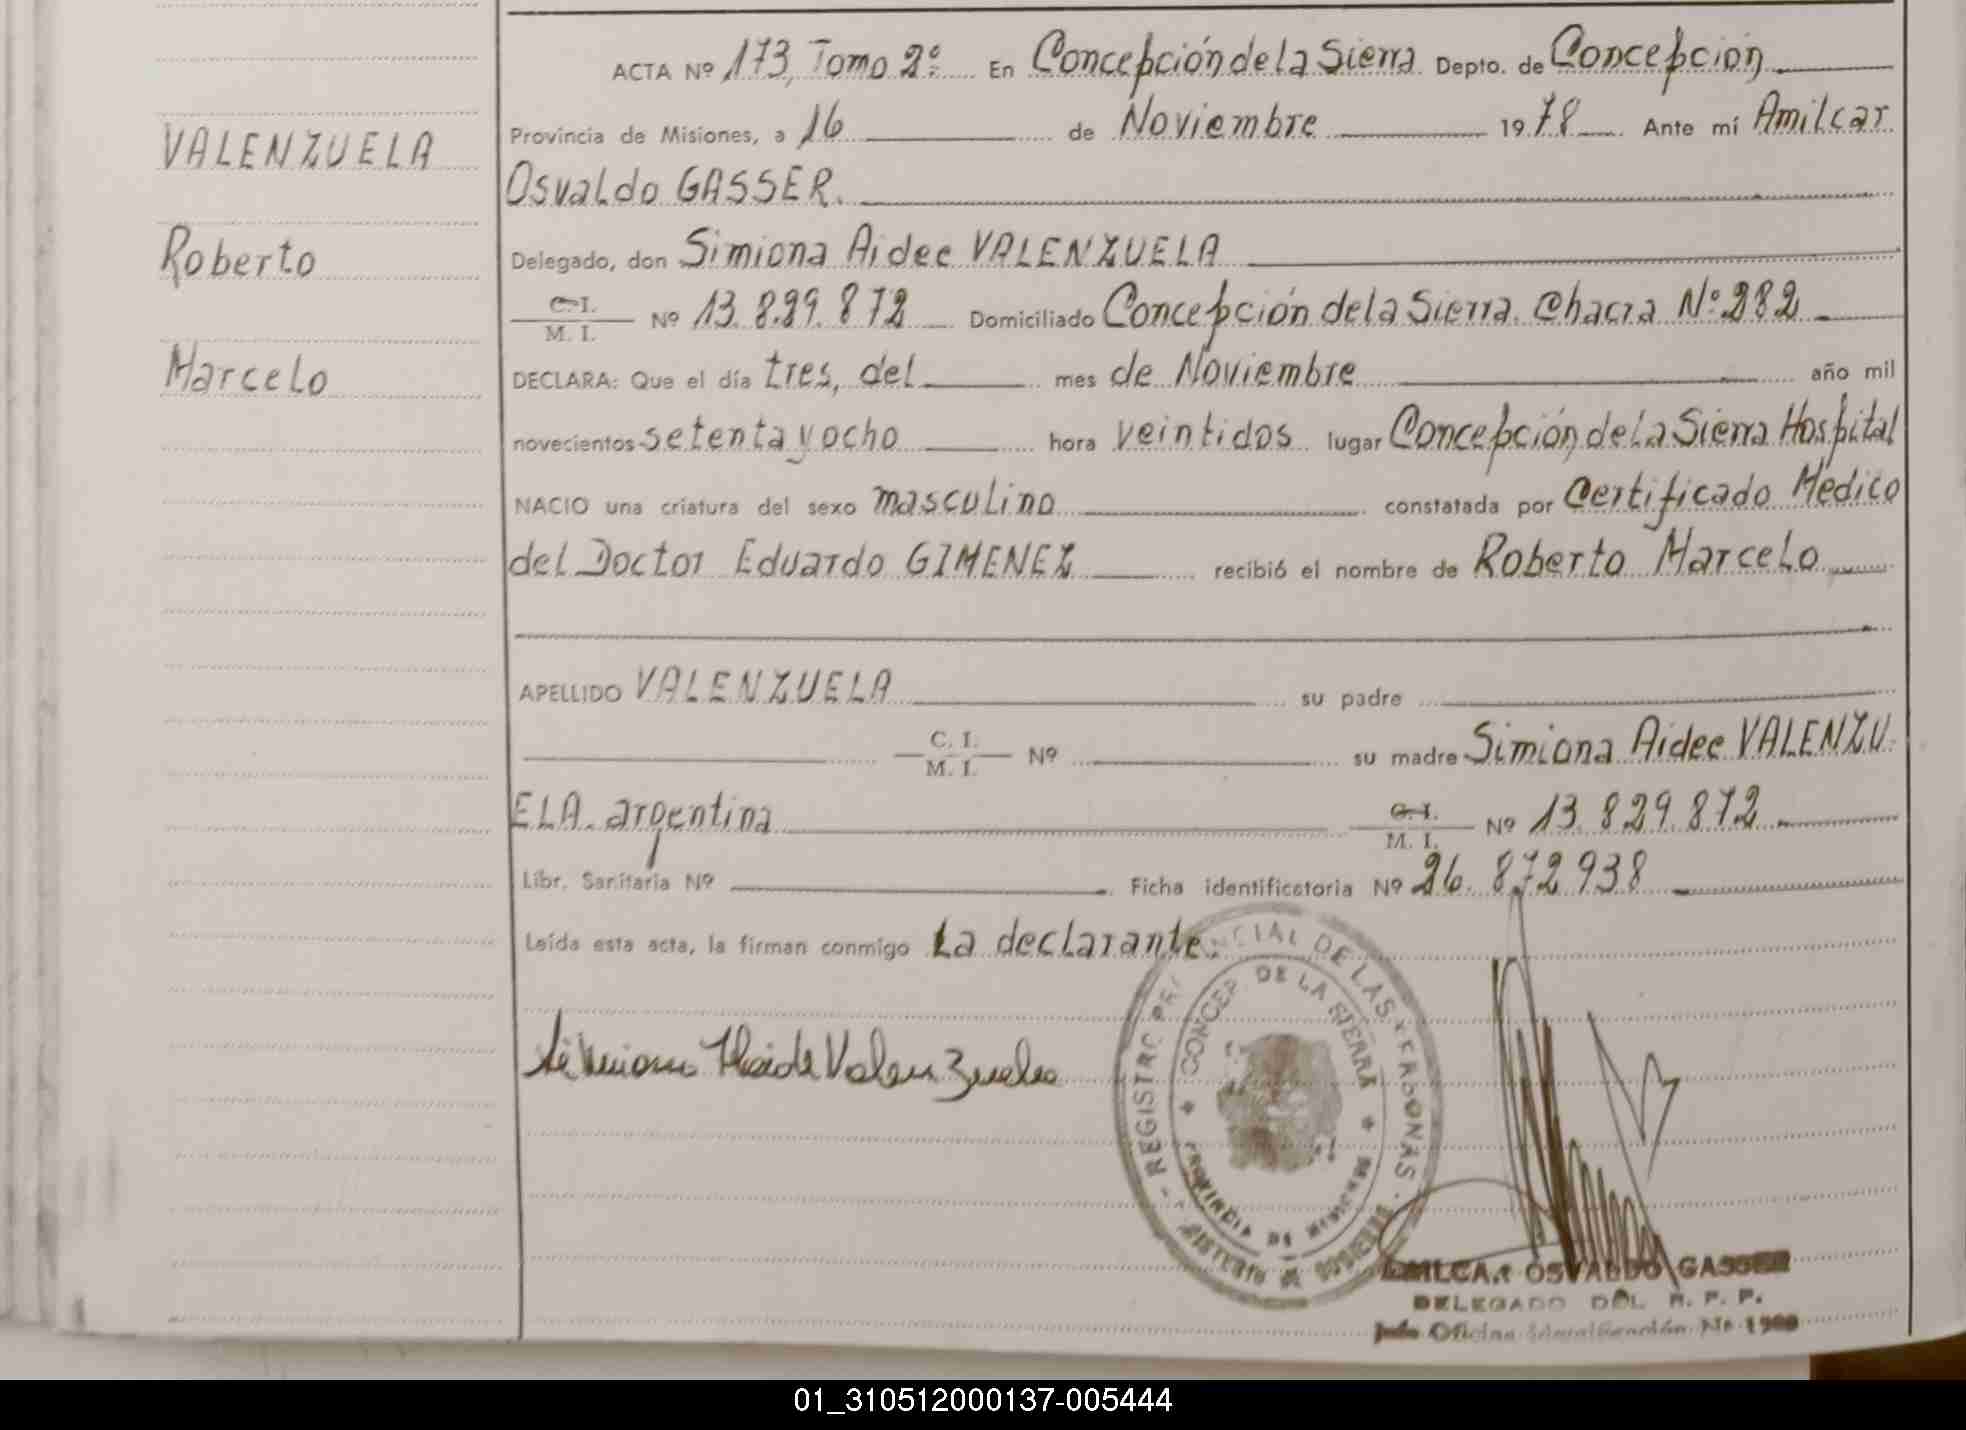 ACTA Nº 173, Tomo 2º En Concepción de la Sierra Depto. de Concepción
Provincia de Misiones, a 16 de Noviembre 1978 Ante mí Amilcar
Osvaldo GASSER.
Delegado, don Simiona Aidee VALENZUELA
C.I. M.I. Nº 13.829.872 Domiciliado Concepción de la Sierra. Chacra Nº 282
DECLARA: Que el día tres, del mes de Noviembre año mil
novecientos setenta y ocho hora veintidos lugar Concepción de la Sierra Hospital
NACIO una criatura del sexo masculino constatada por Certificado Médico
del Doctor Eduardo GIMENEZ recibió el nombre de Roberto Marcelo
APELLIDO VALENZUELA su padre
C. I. M. I. Nº su madre Simiona Aidee VALENZU-
ELA. argentina C.I. M. I. Nº 13.829.872
Libr. Sanitaria Nº Ficha identificatoria Nº 26.872.938
Leída esta acta, la firman conmigo La declarante.
VALENZUELA
Roberto
Marcelo
Simiona Haide Valenzuela
REGISTRO PROVINCIAL DE LAS PERSONAS
CONCEP. DE LA SIERRA
PROVINCIA DE MISIONES
AMILCAR OSVALDO GASSER
DELEGADO DEL R. P. P.
Jefe Oficina Identificación No
01_310512000137-005444